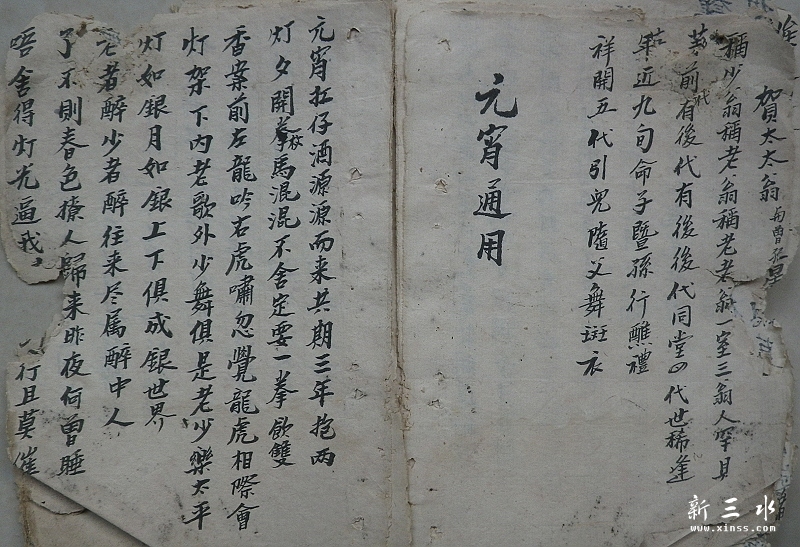 賀太太翁 有曾孫
稱少翁稱老翁稱老老翁一室三翁人罕見
前代有後代有後後代同堂四代世稀逢
年近九旬命子暨孫行醮禮
祥開五代引兒隨父舞斑衣
元宵通用
元宵扛仔酒源源而来共期三年抱兩
灯夕開拳馬混混不舍定要一拳飲雙
香案前左龍吟右虎嘯忽覺龍虎相際會
灯架下内老歌外少舞俱是老少樂太平
灯如銀月如銀上下俱成銀世界
老者醉少者醉往来尽属醉中人
了不則春色撩人歸来昨夜何曾睡
唔舍得灯光逼我
行且莫催
新三水
www.xinss.com